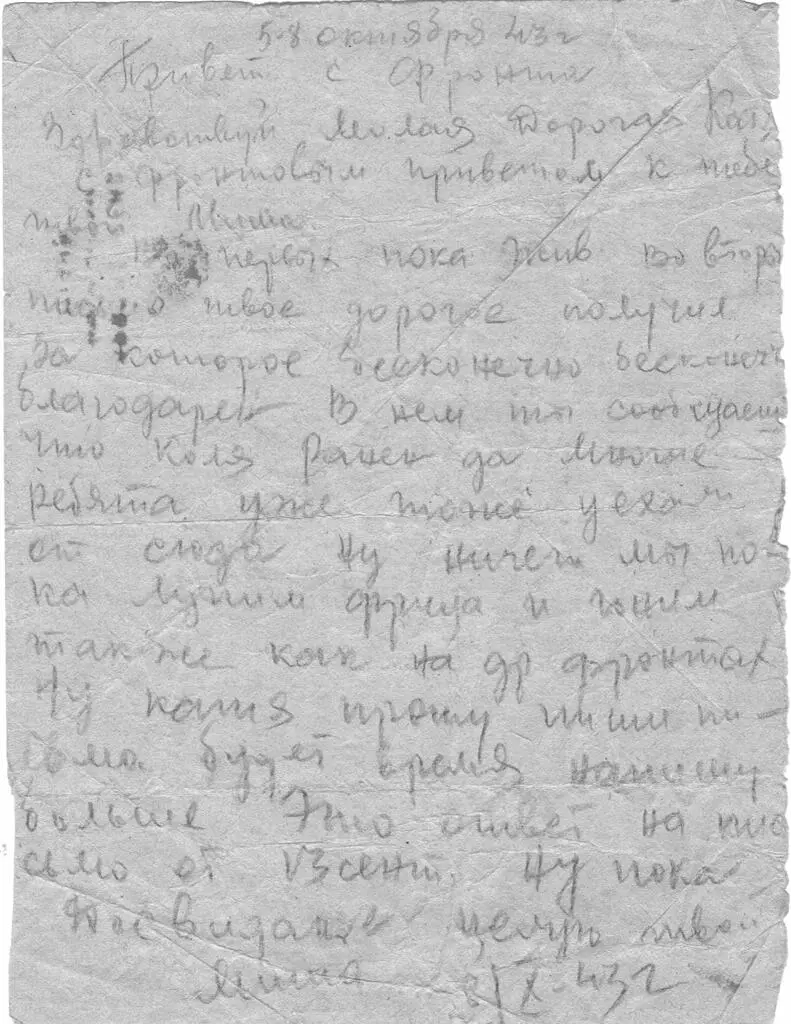 5-8 октября 43 г
Привет с Фронта
Здравствуй Милая Дорогая Катя
с фронтовым приветом к тебе
твой Миша.
Во первых пока жив во вторы
письмо твое дорогое получил
За которое бесконечно бесконеч
благодарен В нем ты сообщаеш
что коля Ранен да многие
ребята уже тоже уехали
от сюда Ну ничего мы по-
ка лупим фрица и гоним
так же как на др фронтах
Ну катя прошу пиши пи-
сьма будет время напишу
больше Это ответ на пис
сьмо от 13 сент. Ну пока
Досвидание целую твой
Миша 8/X-43 г